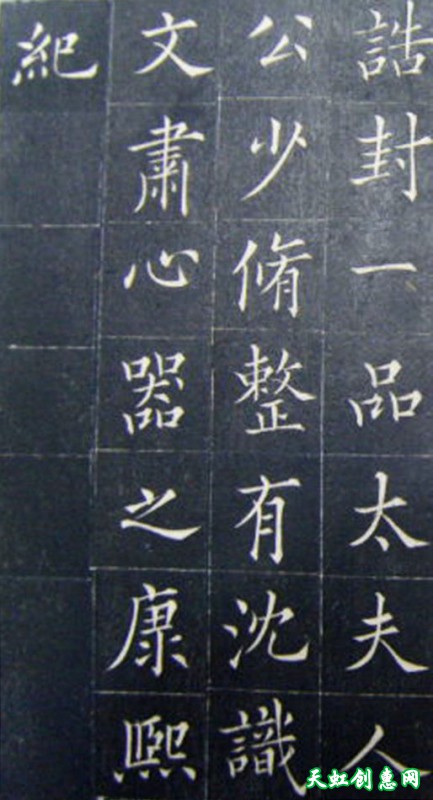 誥封一品太夫人
公少脩整有沈識
文肅心器之康熙
紀
天虹创惠网